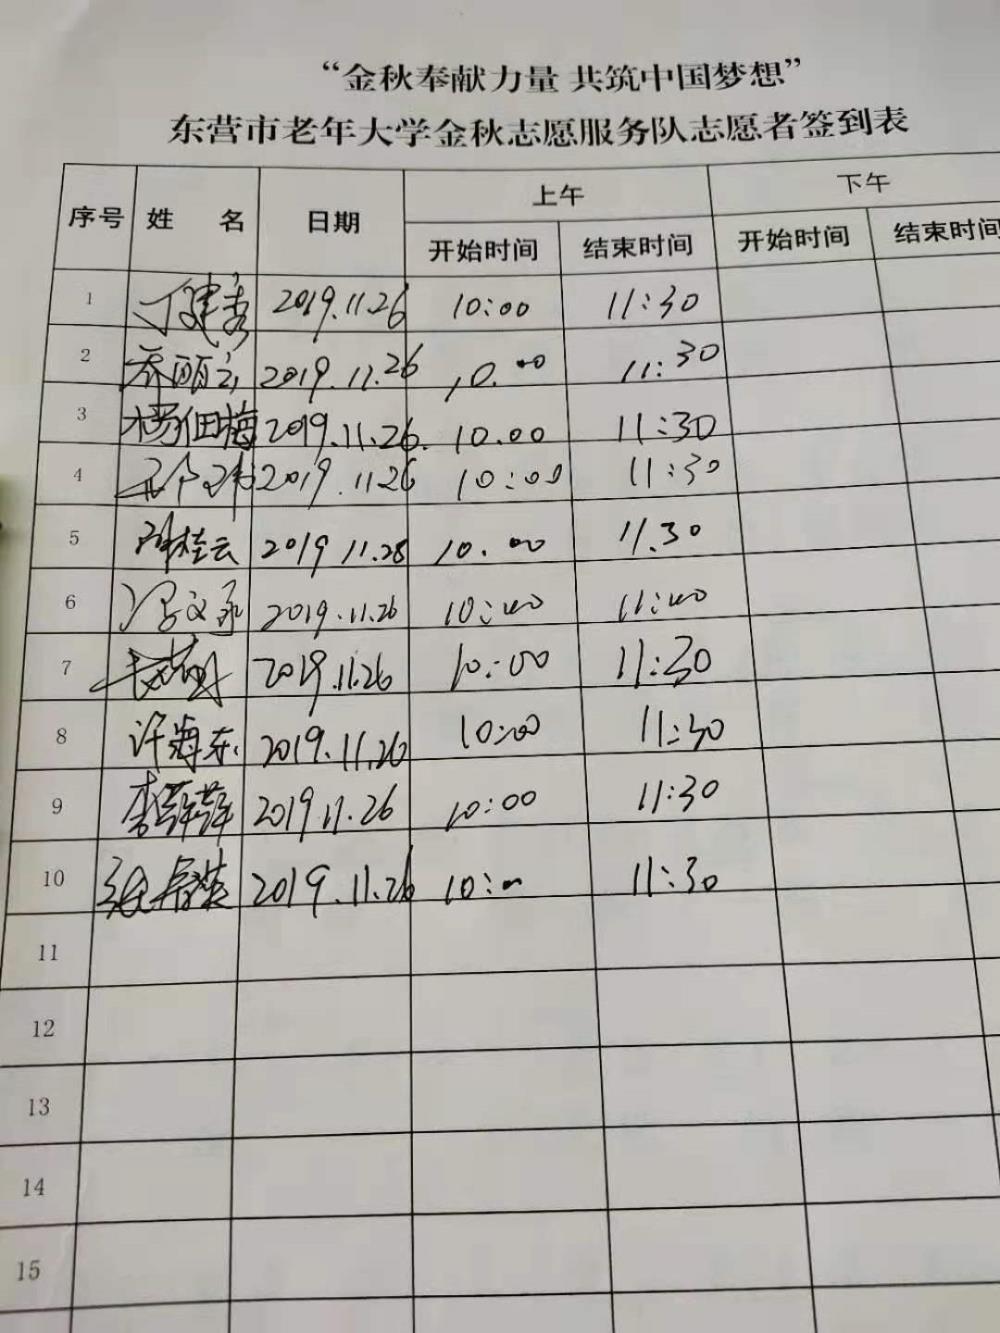 “金秋奉献力量 共筑中国梦想”
东营市老年大学金秋志愿服务队志愿者签到表
序号 姓 名 日期 上午 下午
开始时间 结束时间 开始时间 结束时间
1 丁建秀 2019.11.26 10:00 11:30
2 乔丽 2019.11.26 10.00 11:30
3 杨佃梅 2019.11.26. 10.00 11:30
4 2019.11.26 10:00 11:30
5 桂云 2019.11.28 10.00 11.30
6 冯文 2019.11.26 10:00 11:00
7 2019.11.26 10:00 11:30
8 许海东 2019.11.26 10:00 11:30
9 李萍萍 2019.11.26 10:00 11:30
10 张春英 2019.11.26 10:00 11:30
11
12
13
14
15